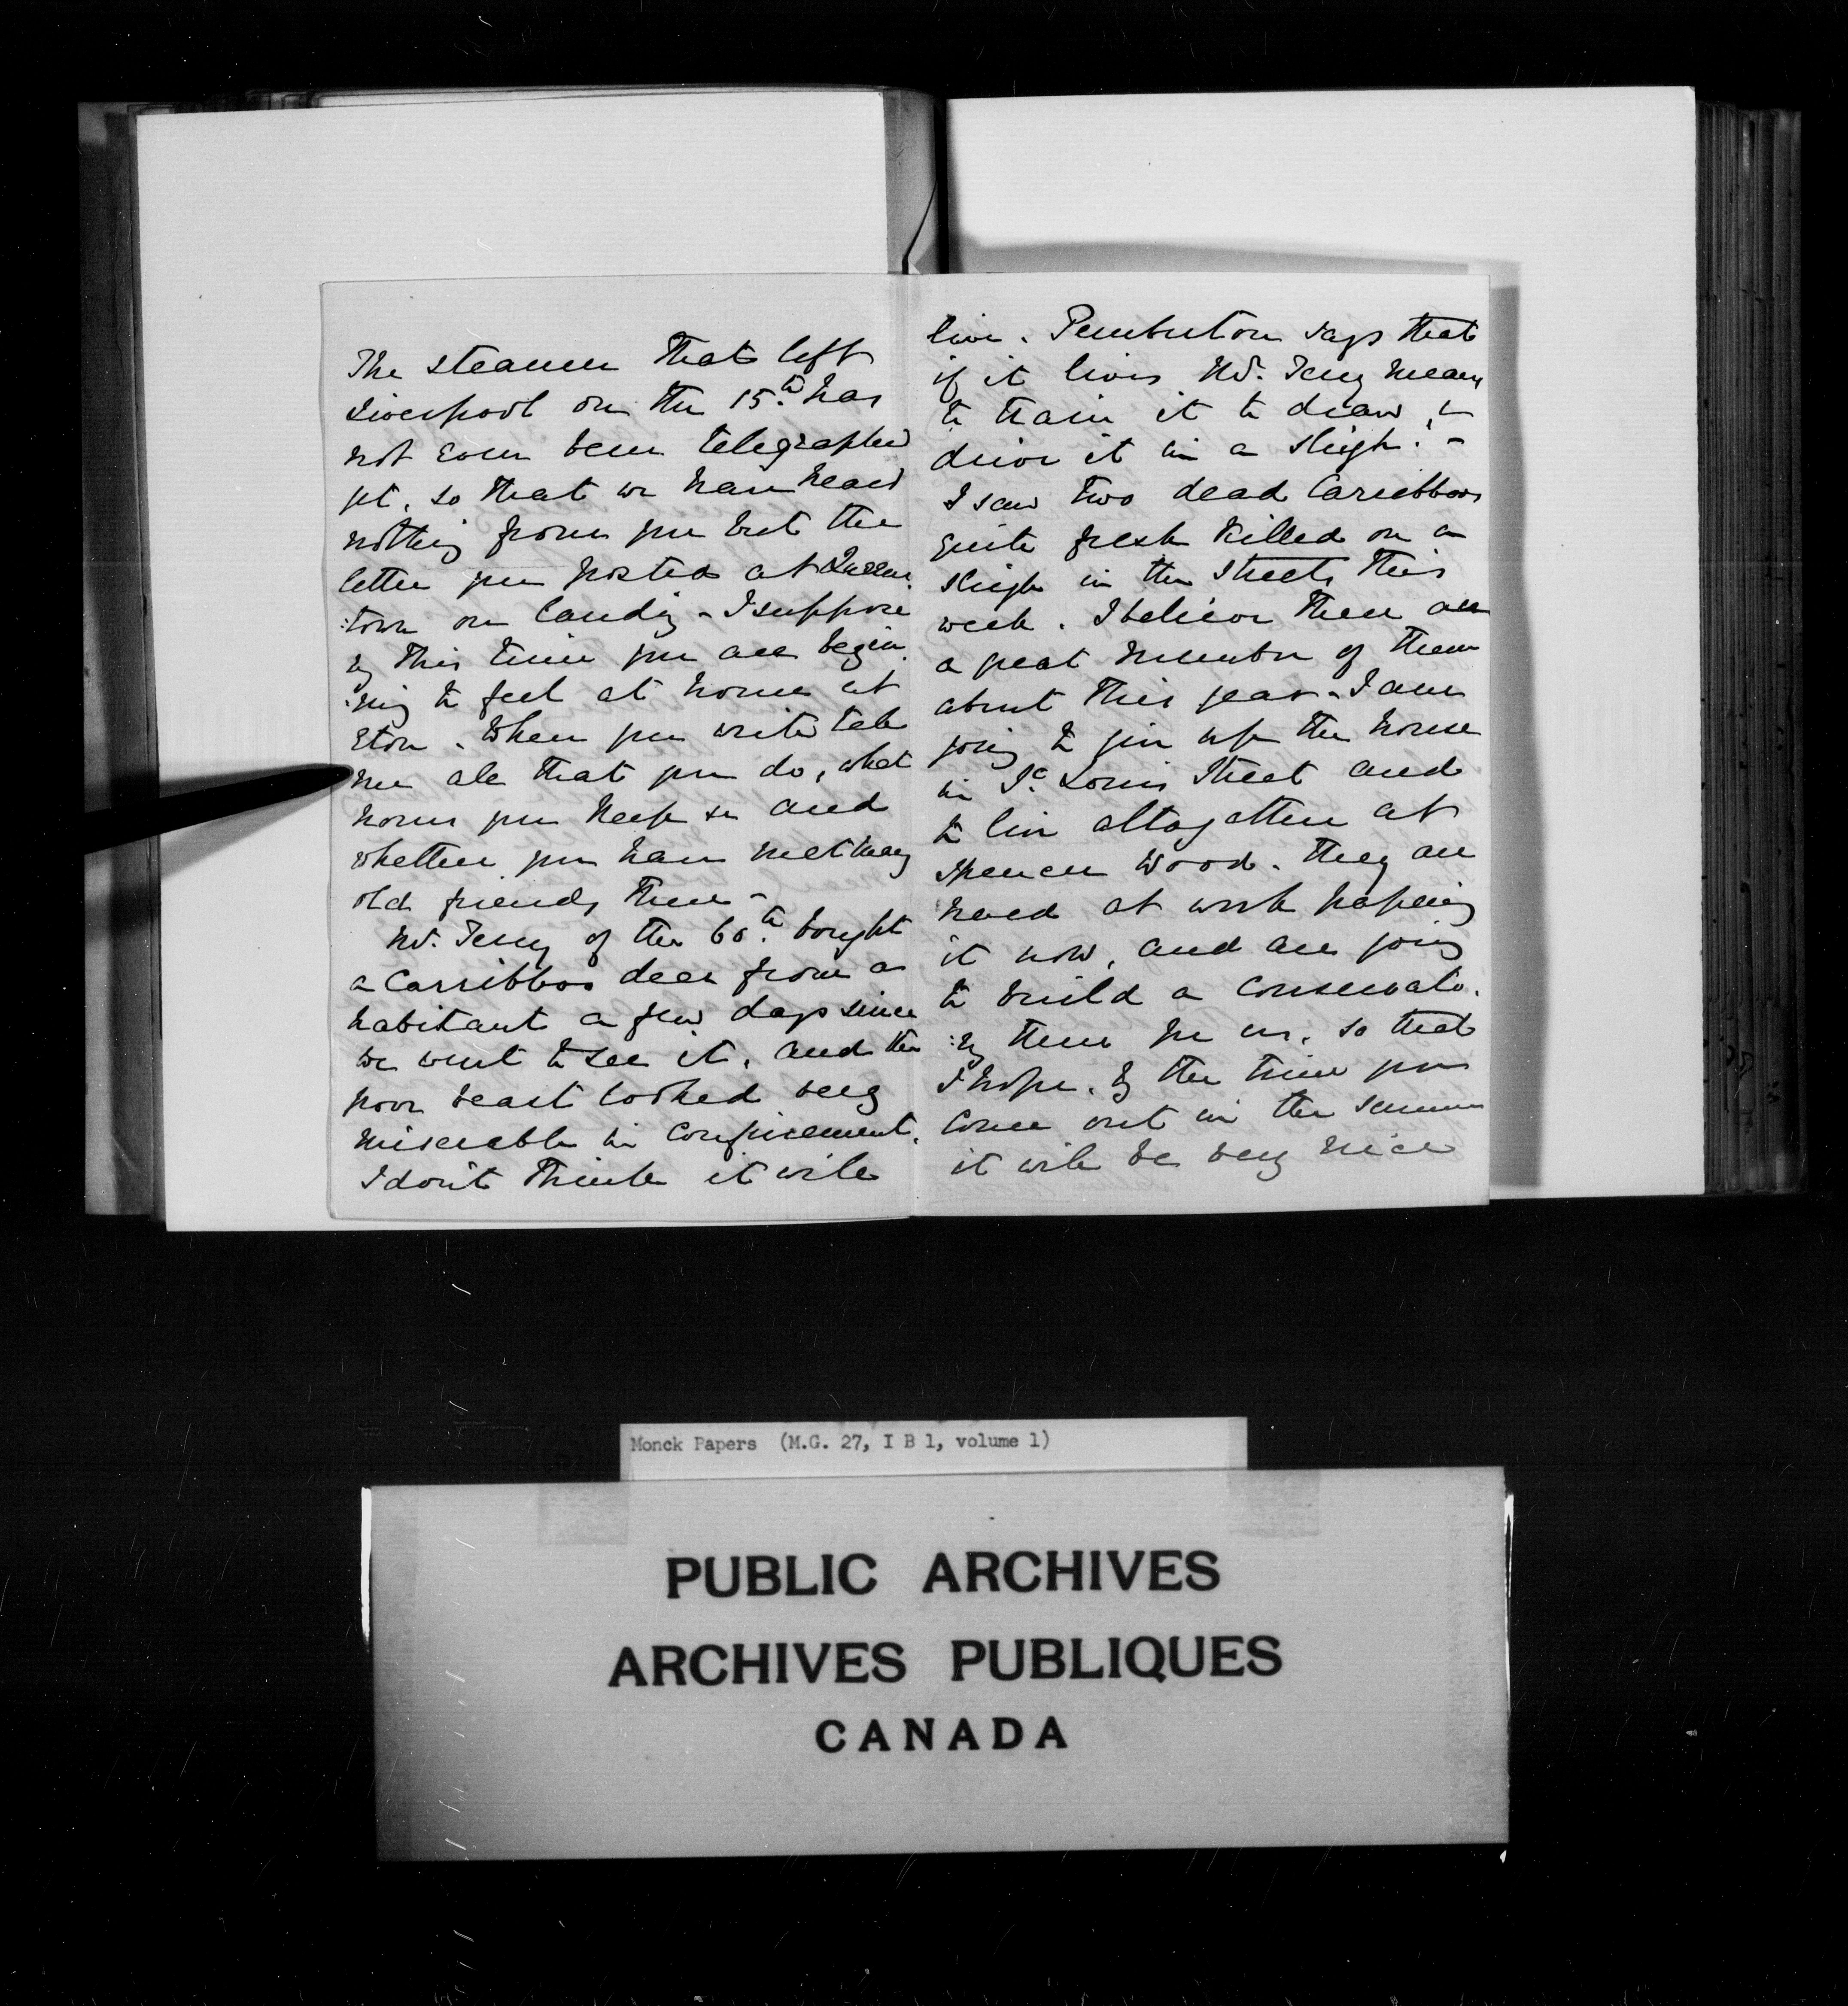 The steamer that left
Liverpool on the 15.th has
not even been telegraphed
yet, so that we have heard
nothing from you but the
letter you posted at Queens
:town on landing - I suppose
by this time you are begin
:ning to feel at home at
Eton - When you write tell
me all that you do, what
hours you keep &c and
whether you have met many
old friends there -
Mr. Terry of the 60.th bought
a Carribboo deer from a
habitant a few days since
we went to see it, and the
poor beast looked very
miserable in confinement.
I don't think it will
live. Pemberton says that
if it lives Mr. Terry means
to train it to draw, &
drive it in a sleigh! -
I saw two dead Carribboos
quite fresh killed on a
sleigh in the streets this
week. I believe there are
a great number of them
about this year - I am
going to give up the house
in St. Louis Street and
to live altogether at
Spencer Wood. They are
hard at work papering
it now, and are going
to build a conservato
:ry there for us, so that
I hope, by the time you
come out in the summer
it will be very nice
Monck Papers (M.G. 27, I B 1, volume 1)
PUBLIC ARCHIVES
ARCHIVES PUBLIQUES
CANADA